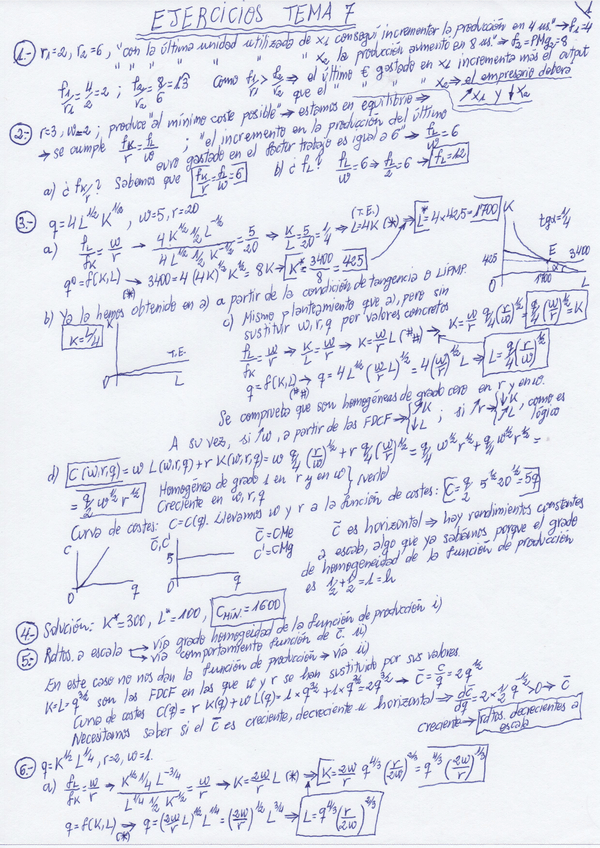 EJERCICIOS TEMA 7
1
1.- r₁=2, r₂=6, "con la última unidad utilizada de x₁ conseguí incrementar la producción en 4 us." → f₁=4
" " " " " x₂ la producción aumentó en 8 us." → f₂=PMg₂=8
f₁/r₁ = 4/2 = 2 ; f₂/r₂ = 8/6 = 1'3 Como f₁/r₁ > f₂/r₂ ⇒ el último € gastado en x₁ incrementa más el output
que el " " " " x₂ ⇒ el empresario deberá
↗x₁ y ↓x₂
2.- r=3, w=2; produce "al mínimo coste posible" → estamos en equilibrio ⇒
→ se cumple fK/r = fL/w ; "el incremento en la producción del último
euro gastado en el factor trabajo es igual a 6" → fL/w = 6
a) ¿fK/r? Sabemos que fK/r = fL/w = 6 b) ¿fL? fL/w = 6 → fL/2 = 6 → fL=12
3.- q=4L^1/2 K^1/2, w=5, r=20
a) fL/fK = w/r → 4K^1/2 1/2 L^-1/2 / 4L^1/2 1/2 K^-1/2 = 5/20 → K/L = 5/20 = 1/4 → (T.E.) L=4K (*) L*=4×425=1700
q⁰=f(K,L) →(*) 3400=4(4K)^1/2 K^1/2 = 8K → K*=3400/8=425
K tgα=1/4 425 E α 3400 0 1700 L
b) Ya la hemos obtenido en a) a partir de la condición de tangencia o LIPMP.
K=L/4
K T.E. 0 L
c) Mismo planteamiento que a), pero sin
sustituir w, r, q por valores concretos
fL/fK = w/r → K/L = w/r → K = w/r L (**) → K = w/r q/4 (r/w)^1/2 = q/4 (w/r)^1/2 = K
q=f(K,L) →(**) q=4L^1/2 (w/r L)^1/2 = 4(w/r)^1/2 L → L = q/4 (r/w)^1/2
Se comprueba que son homogéneas de grado cero en r y en w.
A su vez, si ↗w, a partir de las FDCF → ↗K ↓L ; si ↗r → ↓K ↗L, como es
lógico
d) C(w,r,q) = w L(w,r,q) + r K(w,r,q) = w q/4 (r/w)^1/2 + r q/4 (w/r)^1/2 = q/4 w^1/2 r^1/2 + q/4 w^1/2 r^1/2 =
= q/2 w^1/2 r^1/2 Homogénea de grado 1 en r y en w } (verlo)
Creciente en w, r, q
Curva de costes: C=C(q). Llevamos w y r a la función de costes: C = q/2 5^1/2 20^1/2 = 5q
C 0 q
C̄, C' 5 0 q
C̄=CMe
C'=CMg
C̄ es horizontal ⇒ hay rendimientos constantes
a escala, algo que ya sabíamos porque el grado
de homogeneidad de la función de producción
es 1/2+1/2=1=h
4.- Solución: K*=300, L*=100, CMÍN.=1600
5.- Rdtos. a escala → vía grado homogeneidad de la función de producción i)
→ vía comportamiento función de C̄. ii)
En este caso no nos dan la función de producción → vía ii)
K=L=q^3/2 son las FDCF en las que w y r se han sustituido por sus valores.
Curva de costes C(q) = r K(q) + w L(q) = 1×q^3/2 + 1×q^3/2 = 2q^3/2 → C̄ = C/q = 2q^1/2
Necesitamos saber si el C̄ es creciente, decreciente u horizontal → dC̄/dq = 2×1/2 q^-1/2 > 0 → C̄
creciente → rdtos. decrecientes a
escala
6.- q=K^1/2 L^1/4, r=2, w=1.
a) fL/fK = w/r → K^1/2 1/4 L^-3/4 / L^1/4 1/2 K^-1/2 = w/r → K = 2w/r L (*) → K = 2w/r q^4/3 (r/2w)^2/3 = q^4/3 (2w/r)^1/3
q=f(K,L) →(*) q = (2w/r L)^1/2 L^1/4 = (2w/r)^1/2 L^3/4 → L = q^4/3 (r/2w)^2/3